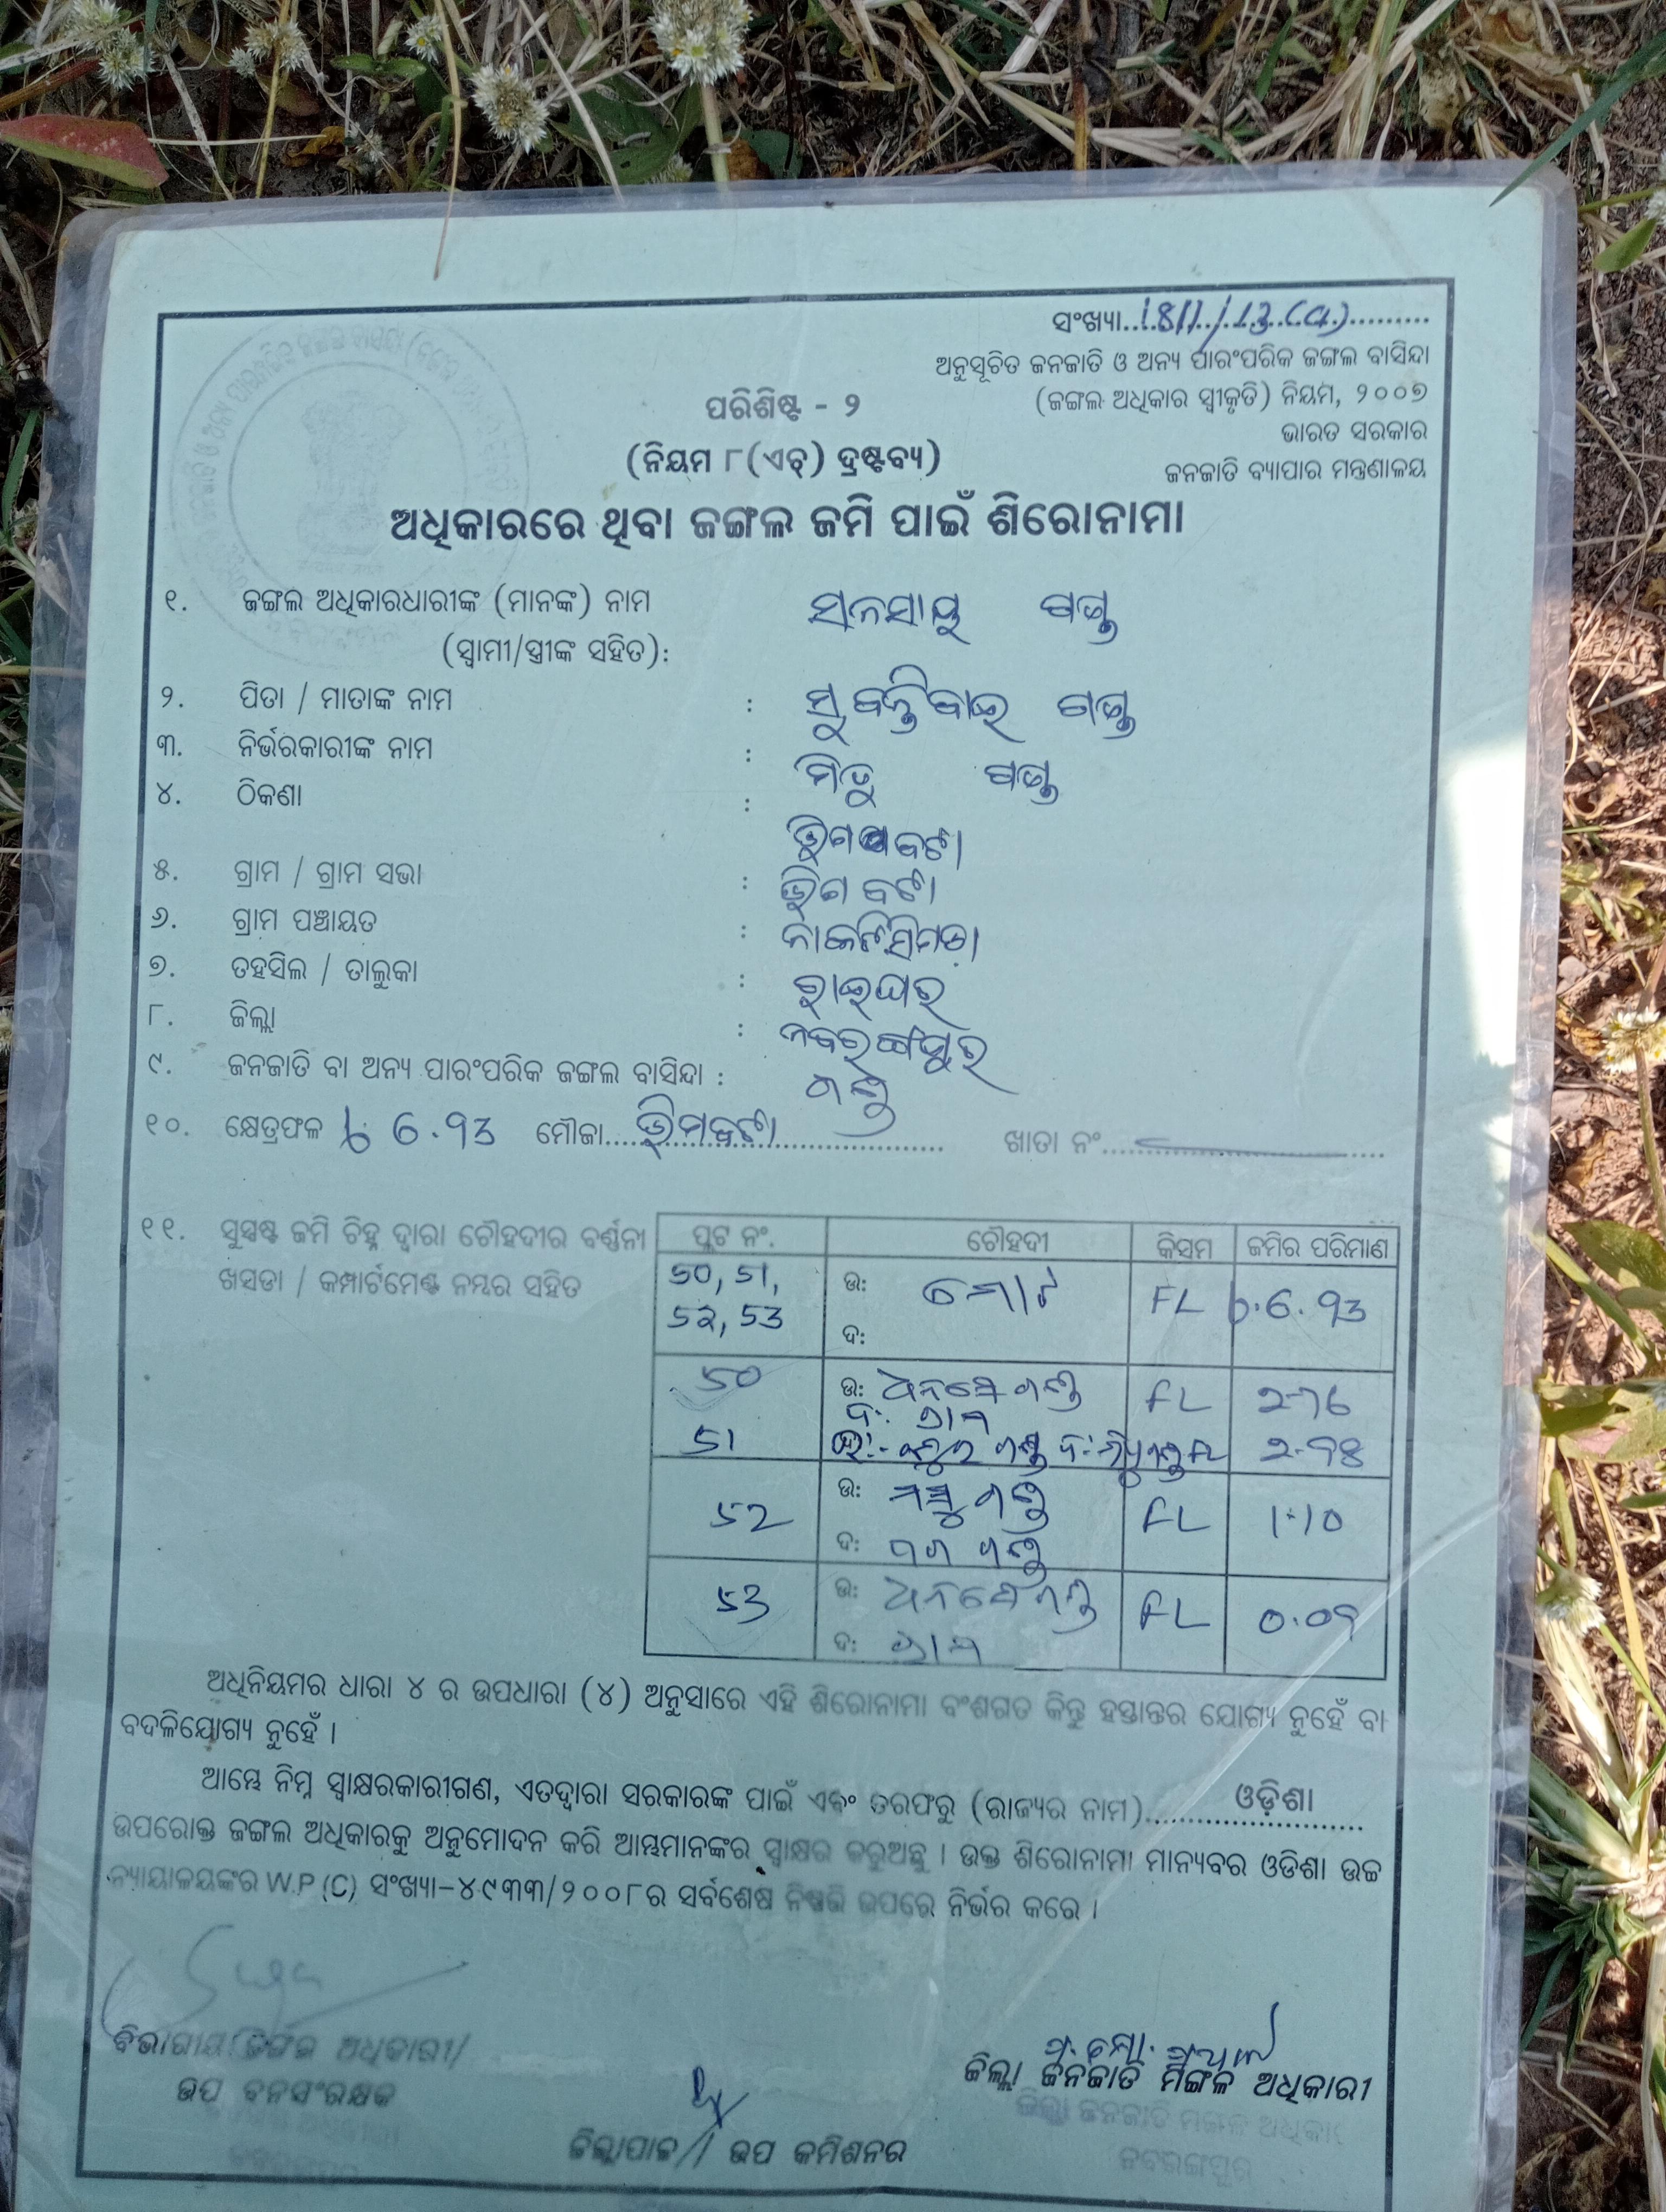 ସଂଖ୍ୟା...1811/13(a)...
ଅନୁସୂଚିତ ଜନଜାତି ଓ ଅନ୍ୟ ପାରଂପରିକ ଜଙ୍ଗଲ ବାସିନ୍ଦା
(ଜଙ୍ଗଲ ଅଧିକାର ସ୍ୱୀକୃତି) ନିୟମ, ୨୦୦୭
ଭାରତ ସରକାର
ଜନଜାତି ବ୍ୟାପାର ମନ୍ତ୍ରଣାଳୟ
ପରିଶିଷ୍ଟ - ୨
(ନିୟମ ୮(ଏଚ୍) ଦ୍ରଷ୍ଟବ୍ୟ)
ଅଧିକାରରେ ଥିବା ଜଙ୍ଗଲ ଜମି ପାଇଁ ଶିରୋନାମା
୧. ଜଙ୍ଗଲ ଅଧିକାରଧାରୀଙ୍କ (ମାନଙ୍କ) ନାମ ଗଣ୍ଡ
(ସ୍ୱାମୀ/ସ୍ତ୍ରୀଙ୍କ ସହିତ):
୨. ପିତା / ମାତାଙ୍କ ନାମ : ଗଣ୍ଡ
୩. ନିର୍ଭରକାରୀଙ୍କ ନାମ : ମିତୁ ଗଣ୍ଡ
୪. ଠିକଣା :
୫. ଗ୍ରାମ / ଗ୍ରାମ ସଭା :
୬. ଗ୍ରାମ ପଞ୍ଚାୟତ : ନାକଟିସିମଡ଼ା
୭. ତହସିଲ / ତାଲୁକା : ରାଇଘର
୮. ଜିଲ୍ଲା : ନବରଙ୍ଗପୁର
୯. ଜନଜାତି ବା ଅନ୍ୟ ପାରଂପରିକ ଜଙ୍ଗଲ ବାସିନ୍ଦା : ଗଣ୍ଡ
୧୦. କ୍ଷେତ୍ରଫଳ 6.93 ମୌଜା... ଖାତା ନଂ...
୧୧. ସୁସ୍ପଷ୍ଟ ଜମି ଚିହ୍ନ ଦ୍ୱାରା ଚୌହଦୀର ବର୍ଣ୍ଣନା
ଖସଡା / କମ୍ପାର୍ଟମେଣ୍ଟ ନମ୍ବର ସହିତ
ପ୍ଲଟ ନଂ. ଚୌହଦୀ କିସମ ଜମିର ପରିମାଣ
50, 51, ଉ: FL 6.93
52, 53 ଦ:
50 ଉ: ଗଣ୍ଡ FL 2-76
ଦ:
51 ଗଣ୍ଡ ଦ: FL 2-98
52 ଉ: ଗଣ୍ଡ FL 1-10
ଦ: ଗଣ୍ଡ
53 ଉ: ଗଣ୍ଡ FL 0.09
ଦ:
ଅଧିନିୟମର ଧାରା ୪ ର ଉପଧାରା (୪) ଅନୁସାରେ ଏହି ଶିରୋନାମା ବଂଶଗତ କିନ୍ତୁ ହସ୍ତାନ୍ତର ଯୋଗ୍ୟ ନୁହେଁ ବା
ବଦଳିଯୋଗ୍ୟ ନୁହେଁ ।
ଆମ୍ଭେ ନିମ୍ନ ସ୍ୱାକ୍ଷରକାରୀଗଣ, ଏତଦ୍ୱାରା ସରକାରଙ୍କ ପାଇଁ ଏବଂ ତରଫରୁ (ରାଜ୍ୟର ନାମ)...ଓଡ଼ିଶା...
ଉପରୋକ୍ତ ଜଙ୍ଗଲ ଅଧିକାରକୁ ଅନୁମୋଦନ କରି ଆମ୍ଭମାନଙ୍କର ସ୍ୱାକ୍ଷର କରୁଅଛୁ । ଉକ୍ତ ଶିରୋନାମା ମାନ୍ୟବର ଓଡିଶା ଉଚ୍ଚ
ନ୍ୟାୟାଳୟଙ୍କର W.P (C) ସଂଖ୍ୟା-୪୯୩୩/୨୦୦୮ର ସର୍ବଶେଷ ନିଷ୍ପତ୍ତି ଉପରେ ନିର୍ଭର କରେ ।
ବିଭାଗୀୟ ଜଙ୍ଗଲ ଅଧିକାରୀ/
ଉପ ବନସଂରକ୍ଷକ
ଜିଲ୍ଲାପାଳ / ଉପ କମିଶନର
ଜିଲ୍ଲା ଜନଜାତି ମଙ୍ଗଳ ଅଧିକାରୀ
ଜିଲ୍ଲା ଜନଜାତି ମଙ୍ଗଳ ଅଧିକାରୀ
ନବରଙ୍ଗପୁର